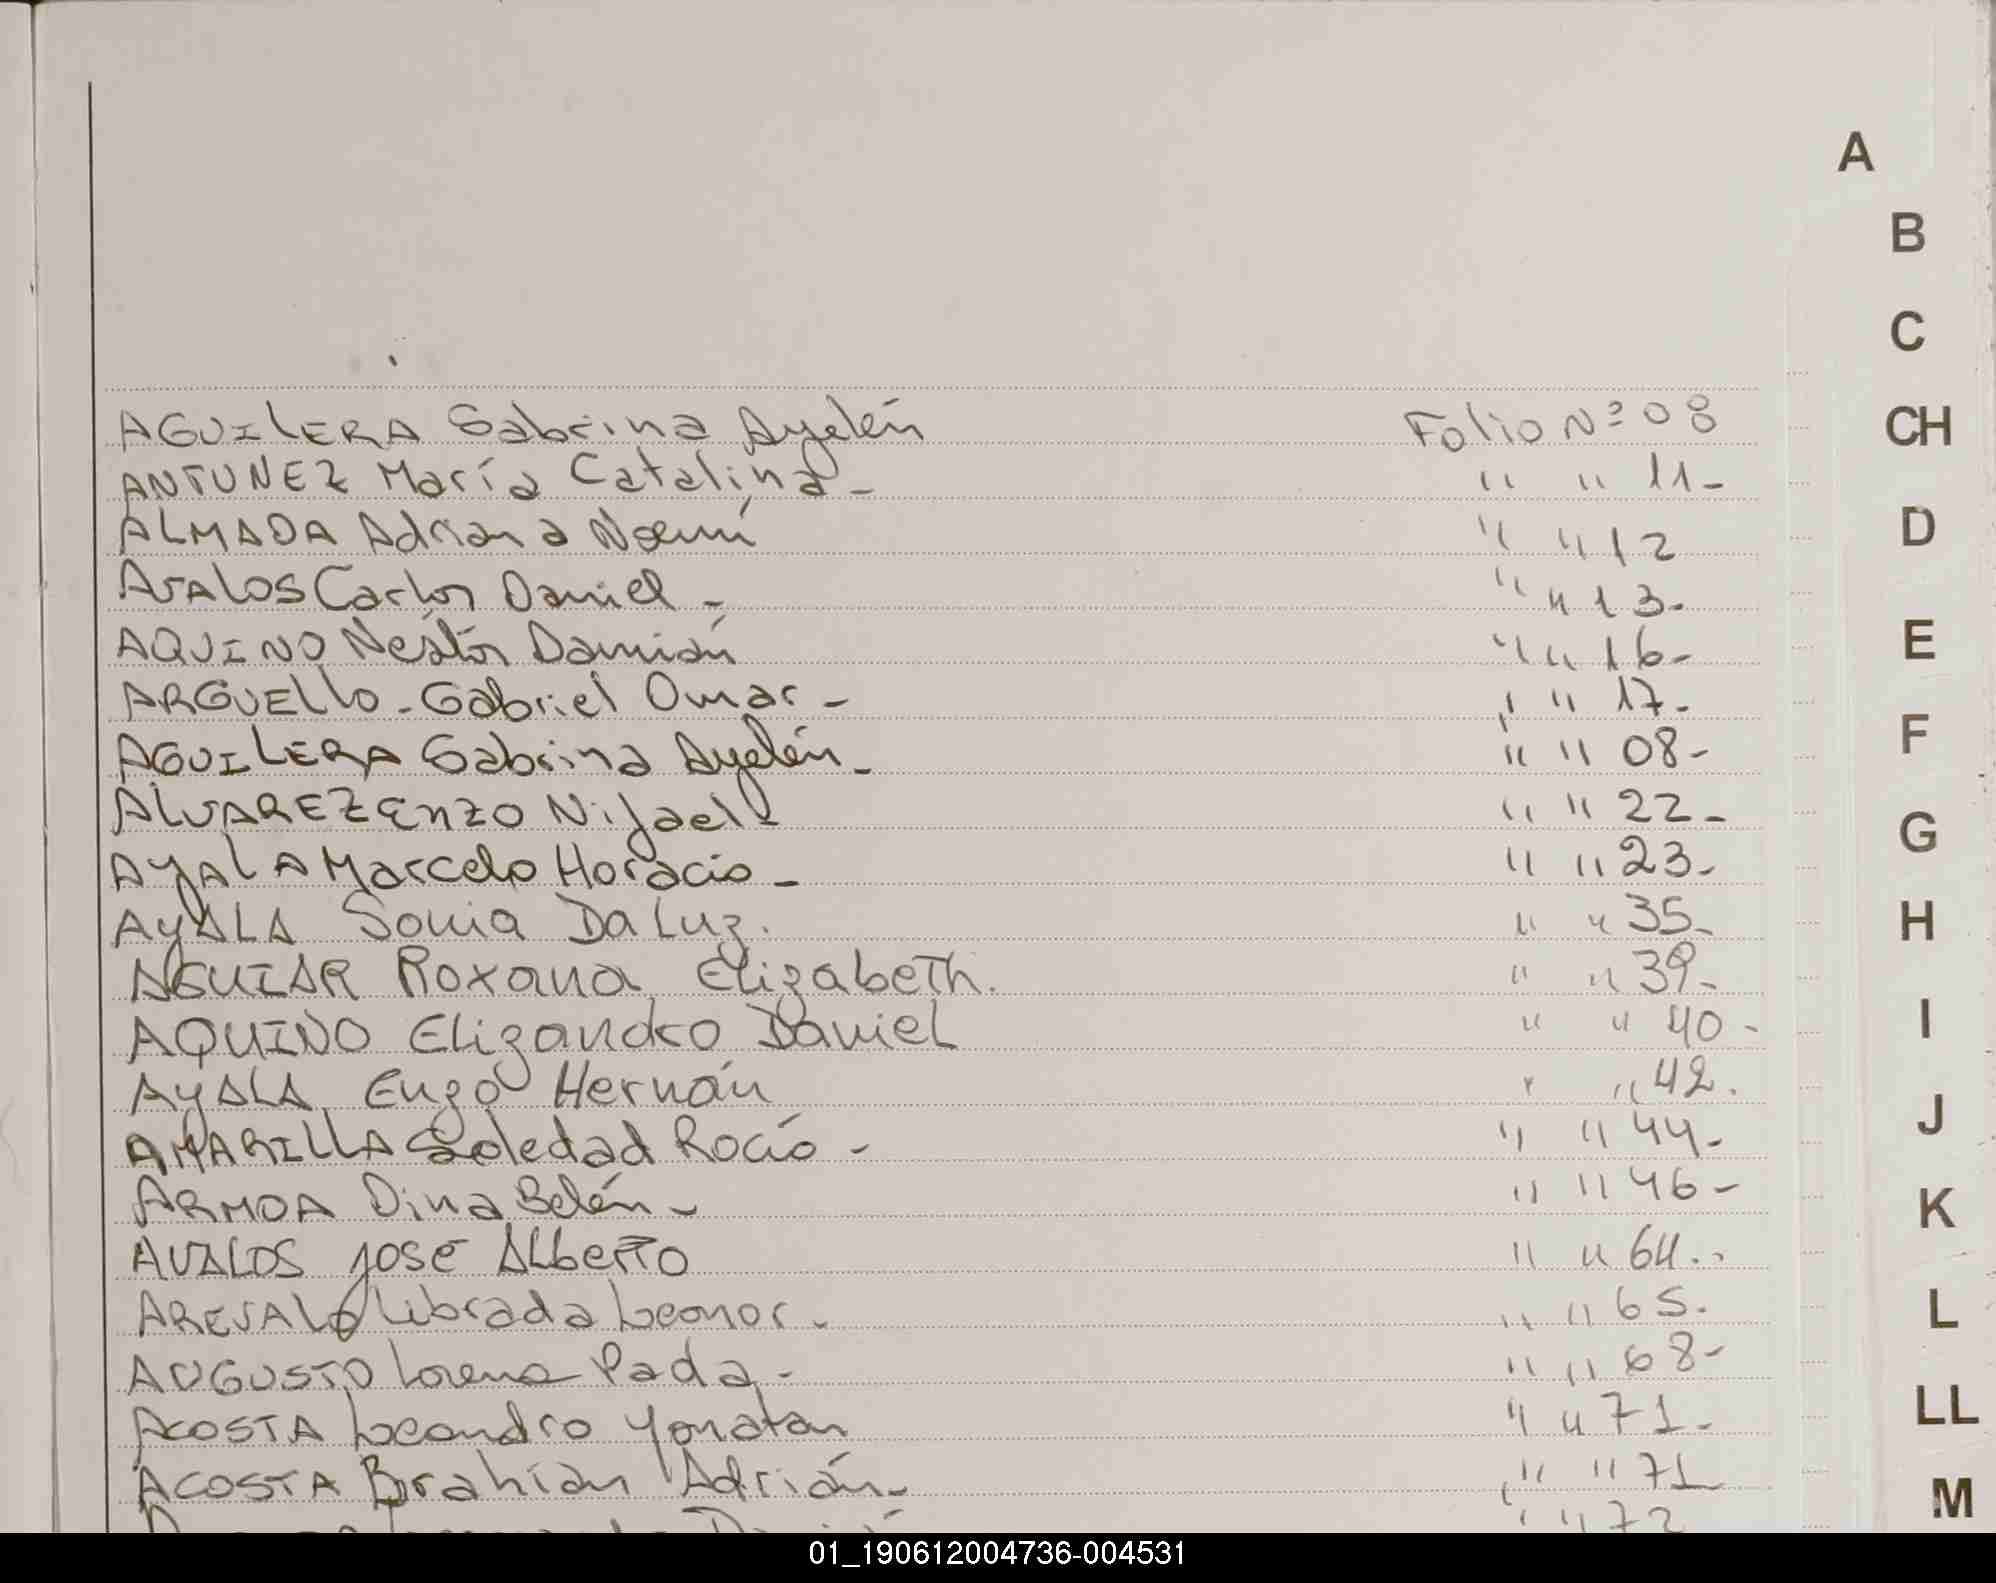 A
B
C
CH
D
E
F
G
H
I
J
K
L
LL
M
AGUILERA Sabrina Ayelén Folio Nº 08
ANTUNEZ María Catalina - " " 11-
ALMADA Adriana Noemí " " 12
AVALOS Carlos Daniel - " " 13-
AQUINO Nestór Damián " " 16-
ARGUELLO - Gabriel Omar - " " 17-
AGUILERA Sabrina Ayelén - " " 08-
ALVAREZ Enzo " " 22-
AYALA Marcelo Horacio - " " 23-
AYALA Sonia Da Luz. " " 35-
AGUIAR Roxana Elizabeth. " " 39-
AQUINO Elizandro Daniel " " 40-
AYALA Enzo Hernán " " 42.
AMARILLA Soledad Rocío - " " 44-
ARMOA Dina Belén - " " 46-
AVALOS José Alberto " " 64..
AREVALO Librada Leonor. " " 65.
AUGUSTO Lorena - " " 68-
ACOSTA Leandro Yonatan " " 71-
ACOSTA Brahian Adrián - " " 71
" " 72
01_190612004736-004531